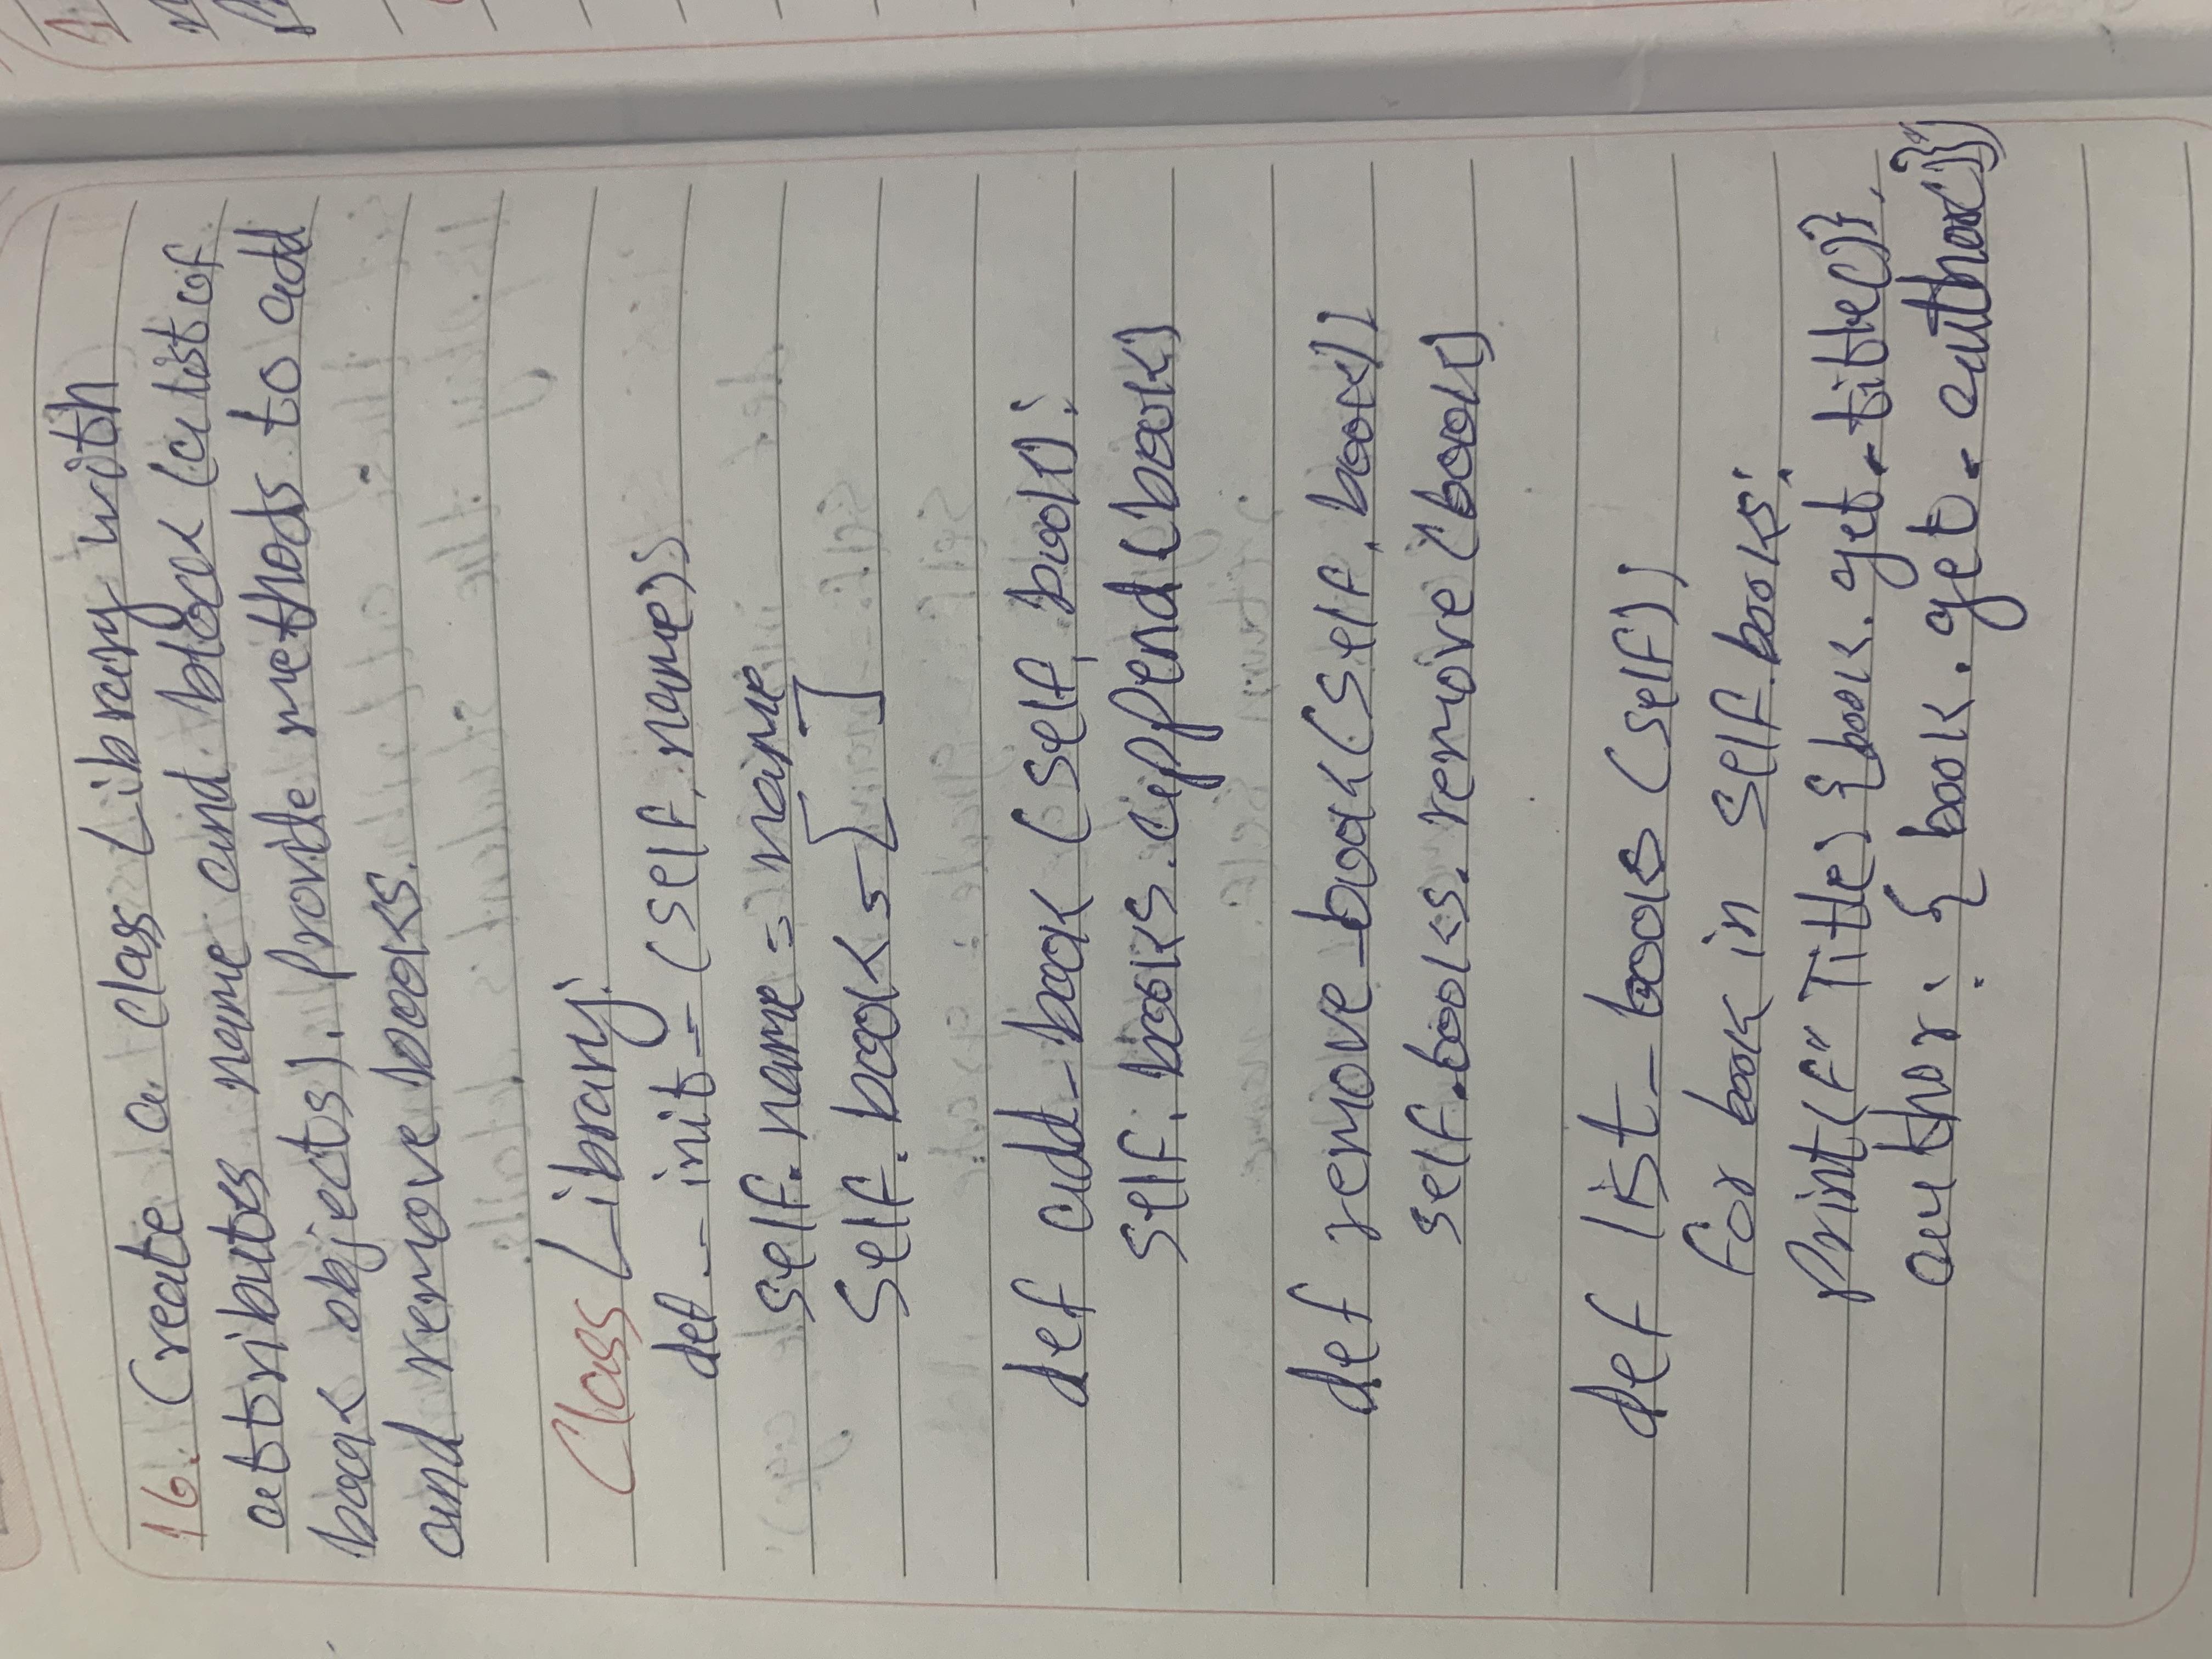 16. Create a class Library with
attributes name and block (a list of
book objects). Provide methods to add
and remove books.
Class Library:
def __init__(self, name):
self.name = name
Self.book = [ ]
def add_book (self, book):
self.books.append(book)
def remove_book(self, book):
self.books.remove(book)
def list_books (self);
for book in self.books:
print(f" Title: {book.get_title()},
author: {book.get_author()}")